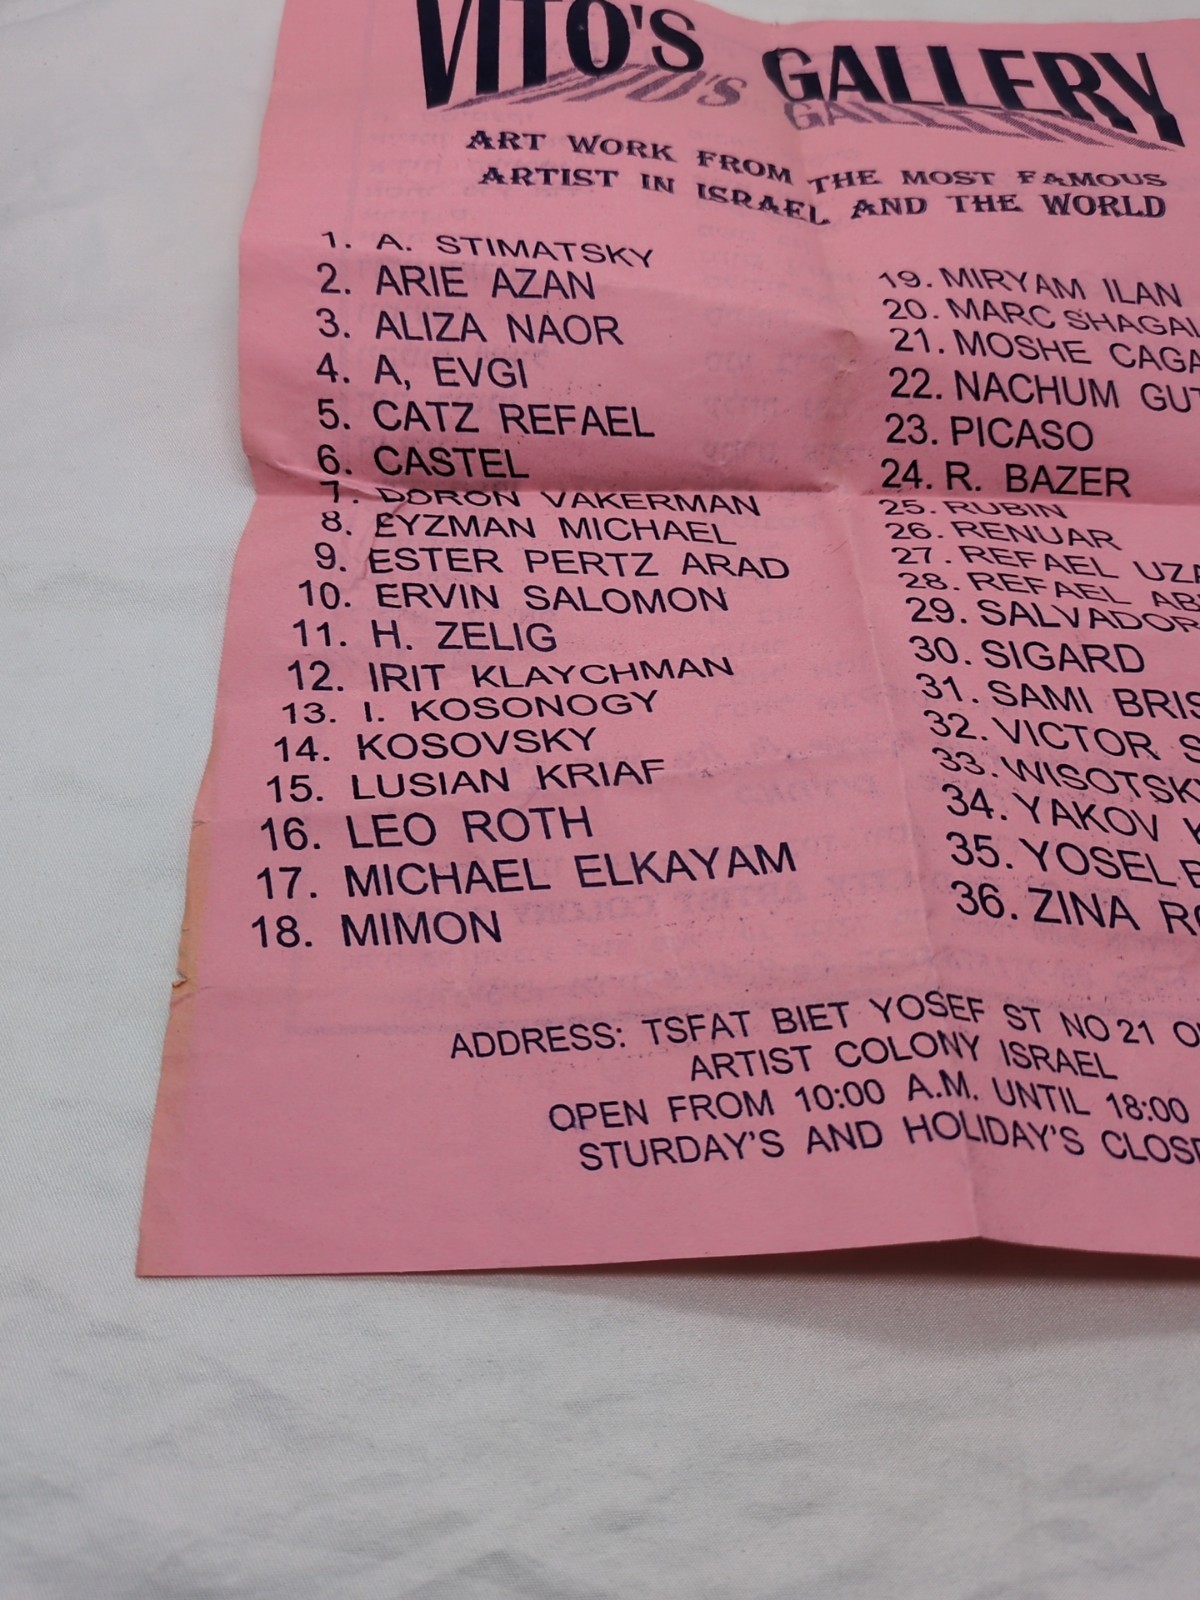 VITO'S GALLERY
ART WORK FROM THE MOST FAMOUS
ARTIST IN ISRAEL AND THE WORLD
1. A. STIMATSKY
2. ARIE AZAN
3. ALIZA NAOR
4. A, EVGI
5. CATZ REFAEL
6. CASTEL
7. DORON VAKERMAN
8. EYZMAN MICHAEL
9. ESTER PERTZ ARAD
10. ERVIN SALOMON
11. H. ZELIG
12. IRIT KLAYCHMAN
13. I. KOSONOGY
14. KOSOVSKY
15. LUSIAN KRIAF
16. LEO ROTH
17. MICHAEL ELKAYAM
18. MIMON
19. MIRYAM ILAN
20. MARC SHAGAL
21. MOSHE CAGA
22. NACHUM GUT
23. PICASO
24. R. BAZER
25. RUBIN
26. RENUAR
27. REFAEL UZA
28. REFAEL AB
29. SALVADOR
30. SIGARD
31. SAMI BRIS
32. VICTOR S
33. WISOTSKY
34. YAKOV
35. YOSEL B
36. ZINA RO
ADDRESS: TSFAT BIET YOSEF ST NO 21 O
ARTIST COLONY ISRAEL
OPEN FROM 10:00 A.M. UNTIL 18:00
STURDAY'S AND HOLIDAY'S CLOSE